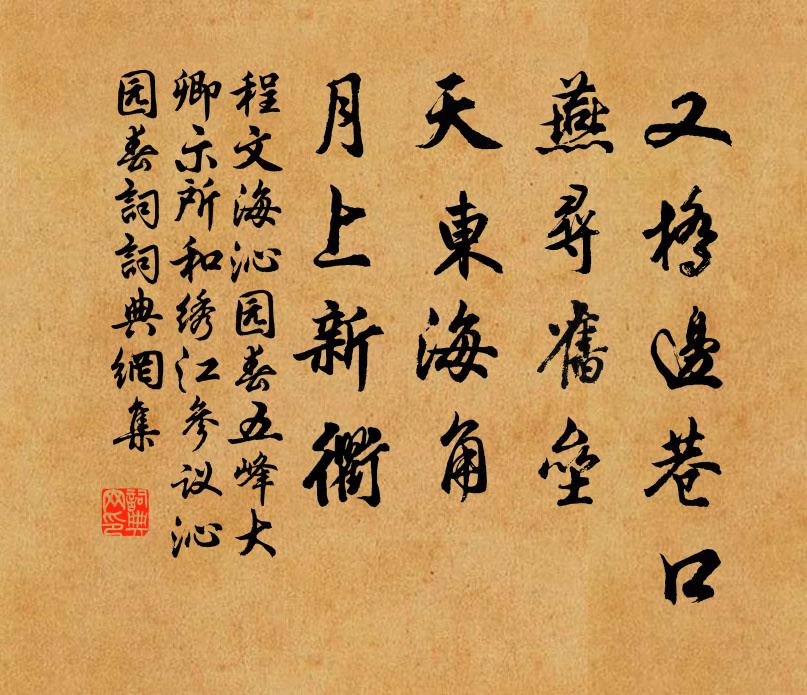 又橋邊巷口
燕尋舊壘
天東海角
月上新衢
程文海沁园春五峰大
卿示所和绣江參议沁
园春詞詞典網集
詞典网印